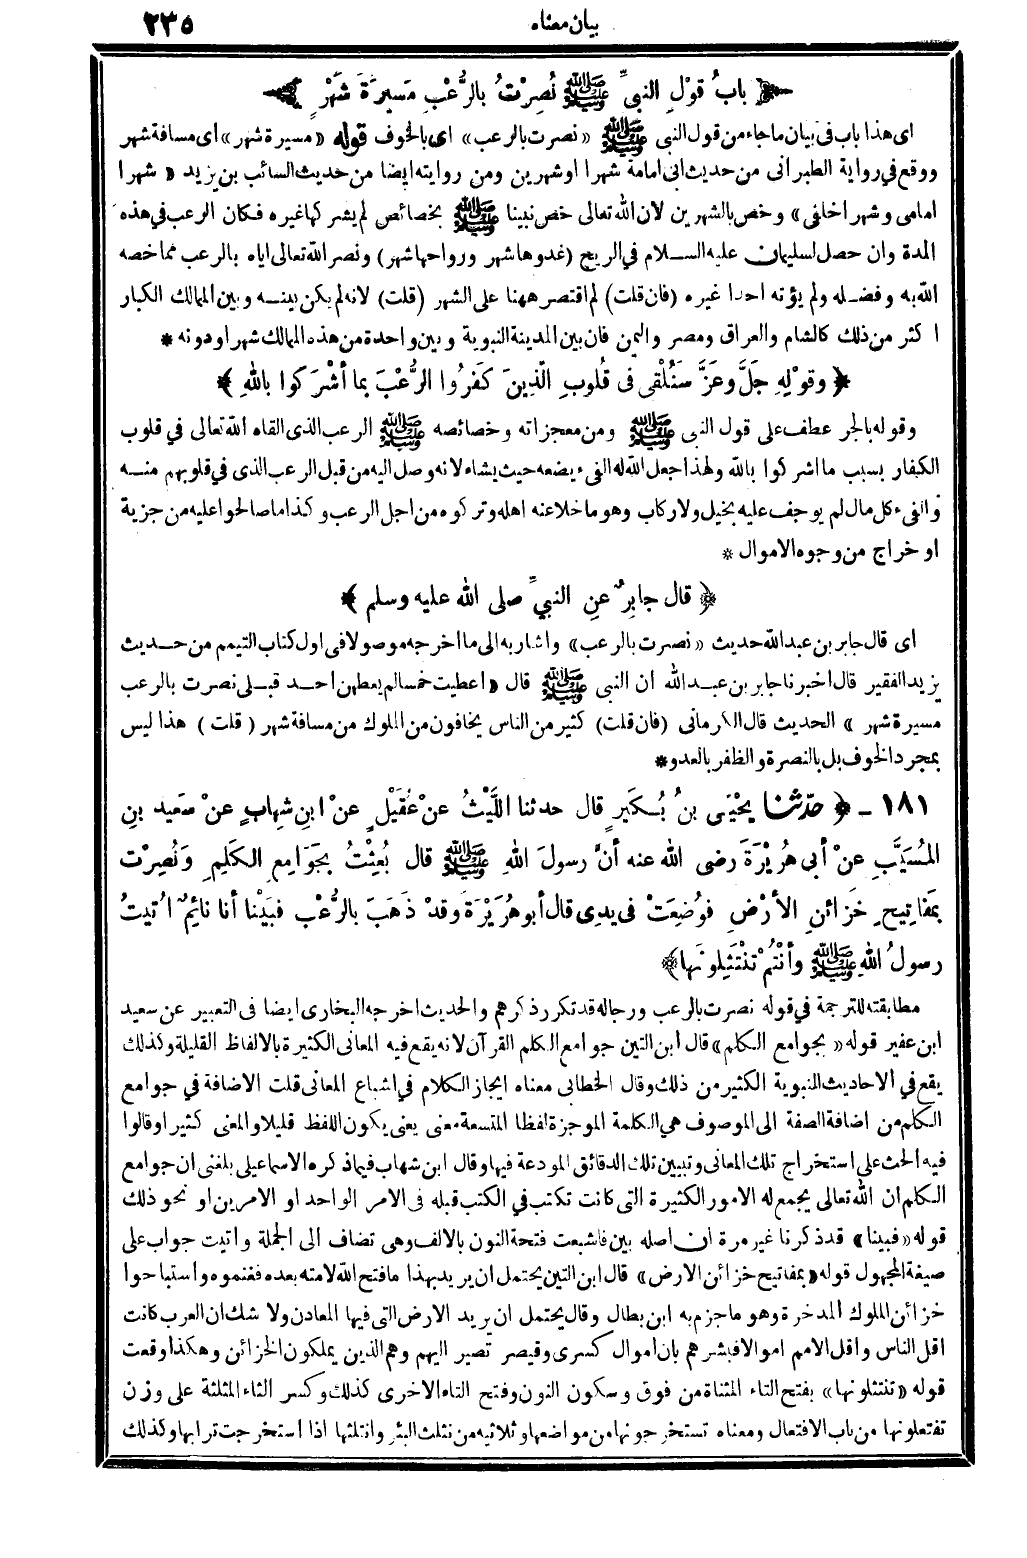 بيان معناه ٢٣٥
﴿ بابُ قوْلِ النبيِّ ﷺ نُصِرْتُ بالرُّعْبِ مَسِيرَةَ شَهْرٍ ﴾
اى هذا باب فى بيان ما جاء من قول النبى ﷺ «نصرت بالرعب» اى بالخوف قوله «مسيرة شهر» اى مسافة شهر
ووقع فى رواية الطبرانى من حديث ابى امامة شهرا او شهرين ومن روايته ايضا من حديث السائب بن يزيد «شهرا
امامى وشهرا خلفى» وخص بالشهرين لان الله تعالى خص نبينا ﷺ بخصائص لم يشركها غيره فكان الرعب فى هذه
المدة وان حصل لسليمان عليه السلام فى الريح (غدوها شهر ورواحها شهر) ونصر الله تعالى اياه بالرعب مما خصه
الله به وفضله ولم يؤته احدا غيره (فان قلت) لم اقتصر ههنا على الشهر (قلت) لانه لم يكن بينه وبين الممالك الكبار
اكثر من ذلك كالشام والعراق ومصر واليمن فان بين المدينة النبوية وبين واحدة من هذه الممالك شهرا ودونه *
﴿ وقوْلِهِ جَلَّ وعَزَّ سَنُلْقِى فى قُلوبِ الّذِينَ كَفَرُوا الرُّعْبَ بما أشْرَكوا باللهِ ﴾
وقوله بالجر عطف على قول النبى ﷺ ومن معجزاته وخصائصه ﷺ الرعب الذى القاه الله تعالى فى قلوب
الكفار بسبب ما اشركوا بالله ولهذا جعل الله له الفىء يضعه حيث يشاء لانه وصل اليه من قبل الرعب الذى فى قلوبهم منه
والفىء كل مال لم يوجف عليه بخيل ولا ركاب وهو ما خلا عنه اهله وتركوه من اجل الرعب وكذا ما صالحوا عليه من جزية
او خراج من وجوه الاموال *
﴿ قال جابِرٌ عنِ النبيِّ صلى الله عليه وسلم ﴾
اى قال جابر بن عبد الله حديث «نصرت بالرعب» واشار به الى ما اخرجه موصولا فى اول كتاب التيمم من حديث
يزيد الفقير قال اخبرنا جابر بن عبد الله ان النبى ﷺ قال «اعطيت خمسا لم يعطهن احد قبلى نصرت بالرعب
مسيرة شهر» الحديث قال الكرمانى (فان قلت) كثير من الناس يخافون من الملوك من مسافة شهر (قلت) هذا ليس
بمجرد الخوف بل بالنصرة والظفر بالعدو*
١٨١ - ﴿ حدّثنا يحْيَى بنُ بُكَيرٍ قال حدثنا اللَّيْثُ عنْ عُقَيْلٍ عنْ ابنِ شِهابٍ عنْ سَعِيدِ بنِ
المُسَيَّبِ عنْ أبى هُرَيْرَةَ رضى الله عنه أنَّ رسولَ اللهِ ﷺ قال بُعِثْتُ بجَوَامِعِ الكَلِمِ ونُصِرْتُ
بمَفاتِيحِ خَزَائنِ الأرْضِ فوُضِعَتْ فى يدِى قال أبو هُرَيْرَةَ وقدْ ذَهَبَ بالرُّعْبِ فبَيْنا أنا نائِمٌ أُتِيتُ
رسولُ اللهِ ﷺ وأنْتُمْ تنْتَثِلونَها﴾
مطابقته للترجمة فى قوله نصرت بالرعب ورجاله قد تكرر ذكرهم والحديث اخرجه البخارى ايضا فى التعبير عن سعيد
ابن عفير قوله «بجوامع الكلم» قال ابن التين جوامع الكلم القرآن لانه يقع فيه المعانى الكثيرة بالالفاظ القليلة وكذلك
يقع فى الاحاديث النبوية الكثير من ذلك وقال الخطابى معناه ايجاز الكلام فى اشباع المعانى قلت الاضافة فى جوامع
الكلم من اضافة الصفة الى الموصوف هى الكلمة الموجزة لفظا المتسعة معنى يعنى يكون اللفظ قليلا والمعنى كثيرا وقالوا
فيه الحث على استخراج تلك المعانى وتبيين تلك الدقائق المودعة فيها وقال ابن شهاب فيما ذكره الاسماعيلى بلغنى ان جوامع
الكلم ان الله تعالى يجمع له الامور الكثيرة التى كانت تكتب فى الكتب قبله فى الامر الواحد او الامرين او نحو ذلك
قوله «فبينا» قد ذكرنا غير مرة ان اصله بين فاشبعت فتحة النون بالالف وهى تضاف الى الجملة واتيت جواب على
صيغة المجهول قوله «بمفاتيح خزائن الارض» قال ابن التين يحتمل ان يريد بهذا ما فتح الله لامته بعده فغنموه واستباحوا
خزائن الملوك المدخرة وهو ما جزم به ابن بطال وقال يحتمل ان يريد الارض التى فيها المعادن ولا شك ان العرب كانت
اقل الناس واقل الامم اموالا فبشرهم بان اموال كسرى وقيصر تصير اليهم وهم الذين يملكون الخزائن وهكذا وقعت
قوله «تنتثلونها» بفتح التاء المثناة من فوق وسكون النون وفتح التاء الاخرى كذلك وكسر الثاء المثلثة على وزن
تفتعلونها من باب الافتعال ومعناه تستخرجونها من مواضعها وثلاثيه من نثلت البئر وانتثلتها اذا استخرجت ترابها وكذلك